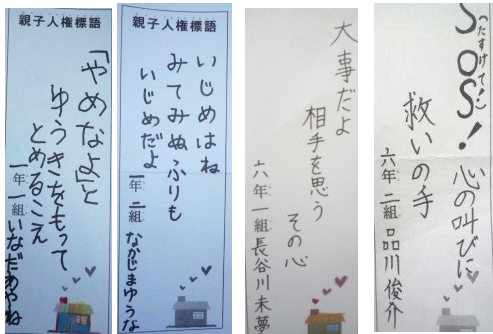 親子人権標語
「やめなよ」と
ゆうきをもって
とめるこえ
一年 一組 いなだあやね
親子人権標語
いじめはね
みてみぬふりも
いじめだよ
一年 二組 なかじまゆうな
大事だよ
相手を思う
その心
六年 一組 長谷川未夢
SOS!
(たすけて!)
心の叫びに
救いの手
六年 二組 品川俊介